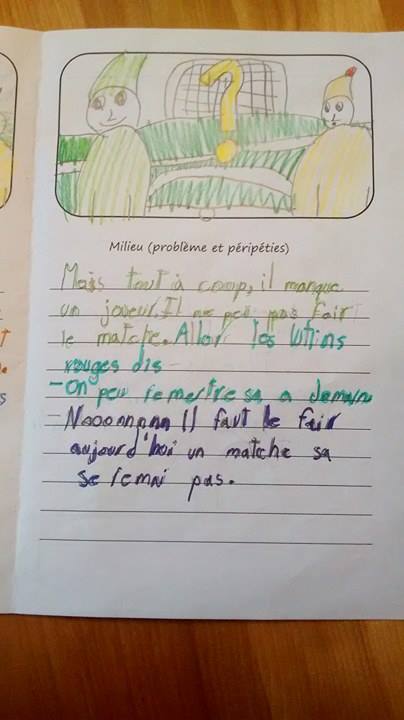 ?
Milieu (problème et péripéties)
Mais tout à coup, il manque
un joueur. Il ne peu pas fair
le matche. Allor les lutins
rouges dis
-On peu remertre sa a demain
-Nooonnnnn Il faut le fair
aujourd'hoi un matche sa
se remai pas.